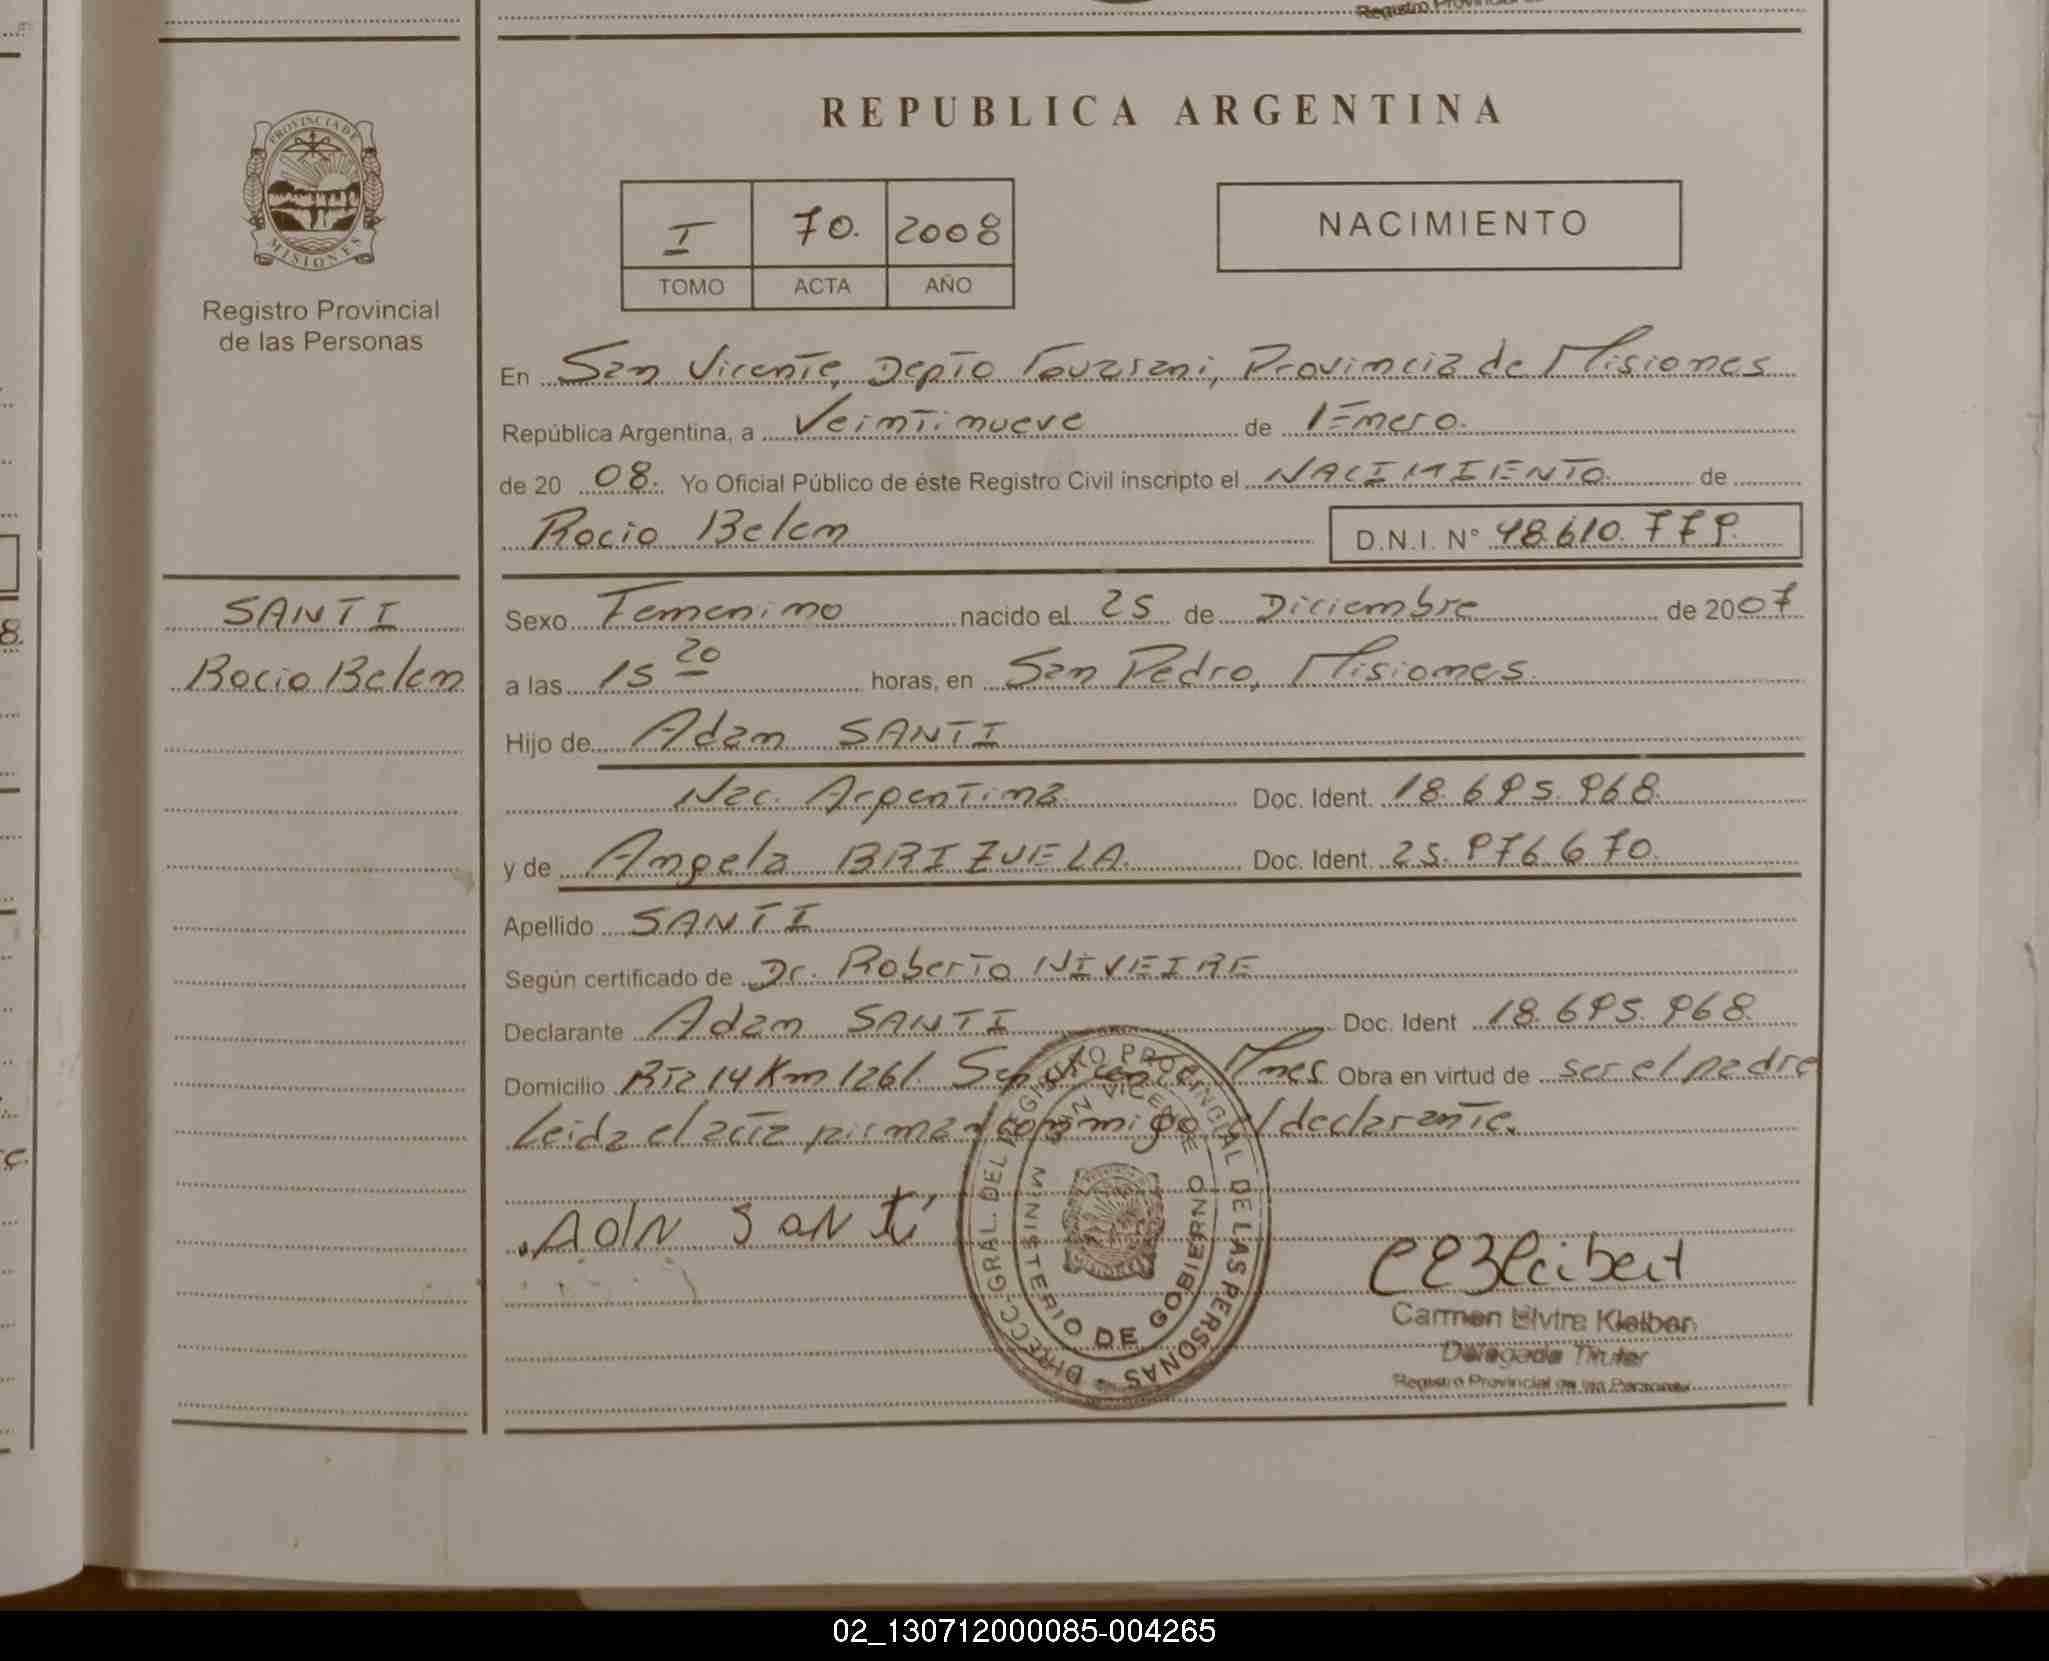 Registro Provincial
REPUBLICA ARGENTINA
PROVINCIA DE
MISIONES
Registro Provincial
de las Personas
I 70. 2008
TOMO ACTA AÑO
NACIMIENTO
En San Vicente, Depto Guarani, Provincia de Misiones
República Argentina, a Veintinueve de Enero.
de 20 08. Yo Oficial Público de éste Registro Civil inscripto el NACIMIENTO de
Rocio Belen D.N.I. N° 48.610.779.
SANTI
Rocio Belen
Sexo Femenino nacido el 25 de Diciembre de 2007
a las 15 20 horas, en San Pedro, Misiones.
Hijo de Adan SANTI
Nac. Argentina Doc. Ident. 18.695.968.
y de Angela BRIZUELA. Doc. Ident. 25.976670.
Apellido SANTI
Según certificado de Dr. Roberto NIVEIRE
Declarante Adan SANTI Doc. Ident 18.695.968.
Domicilio Rta 14 Km 1261. San Vicente, Mnes Obra en virtud de ser el padre
Leida el acta firman conmigo el declarante.
ADIN SANti
DIRECC GRAL. DEL REGISTRO PROVINCIAL DE LAS PERSONAS
SAN VICENTE
MINISTERIO DE GOBIERNO
Carmen Elvira Kleiber
Delegada Titular
Registro Provincial de las Personas
02_130712000085-004265